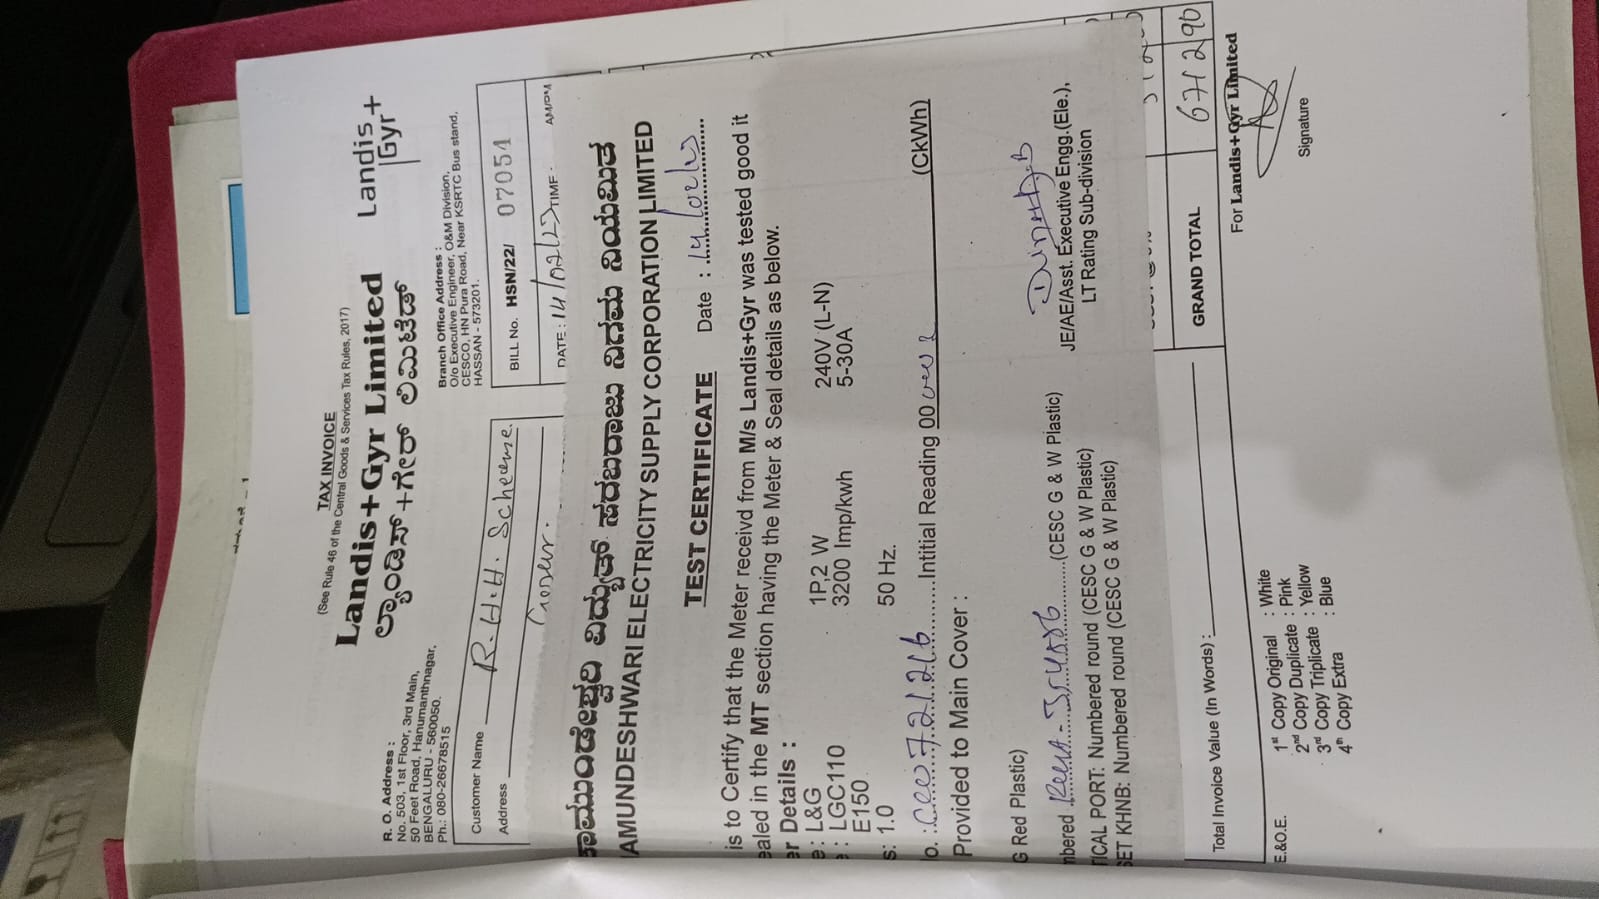 TAX INVOICE
(See Rule 46 of the Central Goods & Services Tax Rules, 2017)
Landis+Gyr Limited
ಲ್ಯಾಂಡಿಸ್+ಗೇರ್ ಲಿಮಿಟೆಡ್
Landis
Gyr+
R. O. Address :
No. 503, 1st Floor, 3rd Main,
50 Feet Road, Hanumanthnagar,
BENGALURU - 560050.
Ph.: 080-26678515
Branch Office Address :
O/o Executive Engineer, O&M Division,
CESCO, HN Pura Road, Near KSRTC Bus stand,
HASSAN - 573201.
Customer Name R.H.H. Scheeme.
Address
BILL No. HSN/22/ 07051
DATE: 14/02/23 TIME: AM/PM
ಾಮುಂಡೇಶ್ವರಿ ವಿದ್ಯುತ್ ಸರಬರಾಜು ನಿಗಮ ನಿಯಮಿತ
AMUNDESHWARI ELECTRICITY SUPPLY CORPORATION LIMITED
TEST CERTIFICATE Date : 14/02/23
is to Certify that the Meter receivd from M/s Landis+Gyr was tested good it
ealed in the MT section having the Meter & Seal details as below.
er Details :
e: L&G 1P,2 W 240V (L-N)
: LGC110 3200 Imp/kwh 5-30A
E150
s: 1.0 50 Hz.
o. : Intitial Reading 00 (CkWh)
Provided to Main Cover :
G Red Plastic)
nbered (CESC G & W Plastic)
TICAL PORT: Numbered round (CESC G & W Plastic)
SET KHNB: Numbered round (CESC G & W Plastic)
JE/AE/Asst. Executive Engg.(Ele.),
LT Rating Sub-division
GRAND TOTAL 671290
Total Invoice Value (In Words) :
For Landis+Gyr Limited
Signature
E.&O.E.
1st Copy Original : White
2nd Copy Duplicate : Pink
3rd Copy Triplicate : Yellow
4th Copy Extra : Blue